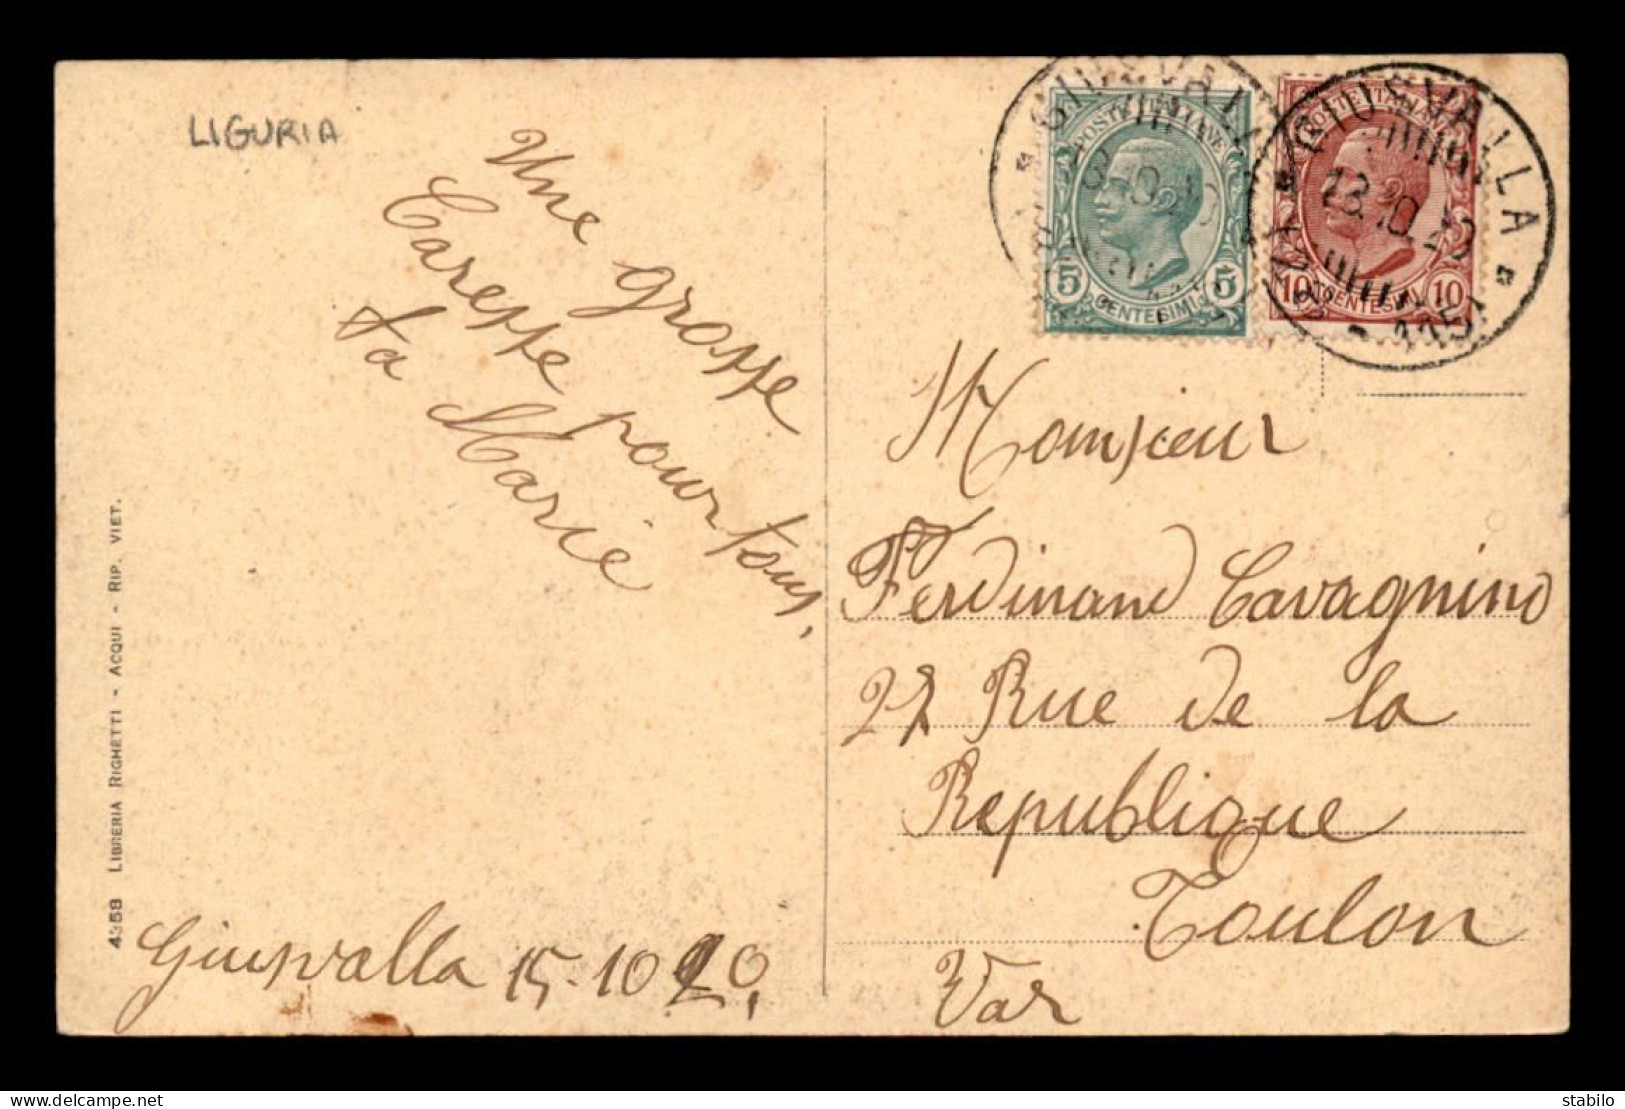 LIGURIA
Une grosse
Caresse pour tous.
ta Marie
Giusvalla 15-10 20.
4358 LIBRERIA RIGHETTI - ACQUI - RIP. VIET.
POSTE ITALIANE
5 5
CENTESIMI
GIUSVALLA
POSTE ITALIANE
10 10
CENTESIMI
GIUSVALLA
Monsieur
Ferdinand Cavagnino
27 Rue de la
Republique
Toulon
Var
stabilo